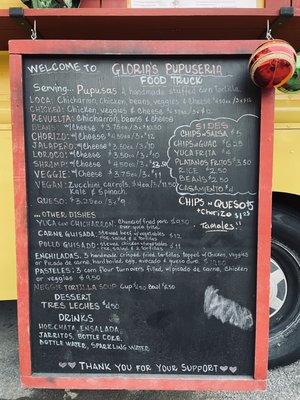 WELCOME TO GLORIA'S PUPUSERIA
FOOD TRUCK
Serving... Pupusas A handmade stuffed corn tortilla.
LOCA: Chicharron, Chicken, beans, veggies & Cheese
CHICKEN: Chicken, veggies & Cheese
REVUELTA: Chicharron, beans & Cheese
BEANS: w/Cheese $3.75ea /3
CHORIZO: w/Cheese
JALAPEÑO: w/Cheese $3.50ea /3
LOROCO: w/Cheese $3.50ea /3
SHRIMP: w/Cheese $4.50ea /3
VEGGIE: w/Cheese $3.75ea /3
VEGAN: Zucchini, carrots, $4ea /3
Kale & Spinach
QUESO: $3.25ea /3
SIDES
CHIPS w/SALSA $5
CHIPS w/GUAC $6.25
YUCA FRITA $4
PLATANOS FRITOS $3.50
RICE $2.50
BEANS $2.50
CASAMIENTO
CHIPS w/QUESO $5
+Chorizo
Tamales
... OTHER DISHES
YUCA con CHICHARRON: Chunks of fried pork $9.50
over yuca fries
CARNE GUISADA: stewed beef w/vegetables $12
rice, salad & 2 tortillas
POLLO GUISADO: stewed chicken w/vegetables $11
rice, salad & 2 tortillas
ENCHILADAS: 3 handmade, crisped, fried tortillas topped w/ Chicken, veggies
or Picado de carne, hard boiled egg, avocado & queso duro.
PASTELES: 3 corn flour turnovers filled w/ picado de carne, Chicken
or veggies $9.50
VEGGIE TORTILLA SOUP Cup Bowl
DESSERT
TRES LECHES
DRINKS
HORCHATA, ENSALADA,
JARRITOS, BOTTLE COKE,
BOTTLE WATER, SPARKLING WATER
THANK YOU FOR YOUR SUPPORT